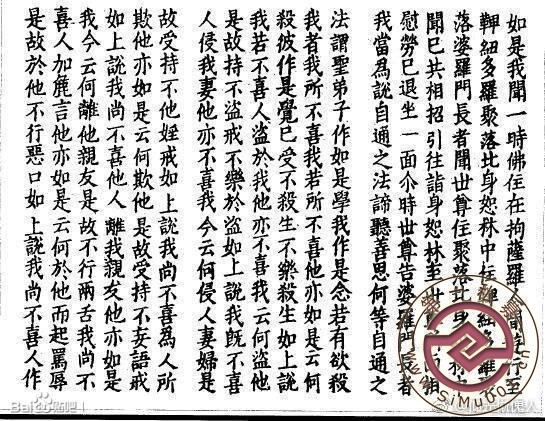 如是我聞一時佛住在拘薩羅間行至
鞞紐多羅聚落北身恕林中住鞞紐多羅聚
落婆羅門長者聞世尊住聚落北身林中
聞已共相招引往詣身恕林至世所相
慰勞已退坐一面尒時世尊告婆羅門長者
我當為說自通之法諦聽善思何等自通之
法謂聖弟子作如是學我作是念若有欲殺
我者我所不喜我若所不喜他亦如是云何
殺彼作是覺已受不殺生不樂殺生如上說
我若不喜人盜於我他亦不喜我云何盜他
是故持不盜戒不樂於盜如上說我旣不喜
人侵我妻他亦不喜我今云何侵人妻婦是
故受持不他婬戒如上說我尚不喜為人所
欺他亦如是云何欺他是故受持不妄語戒
如上說我尚不喜他人離我親友他亦如是
我今云何離他親友是故不行兩舌我尚不
喜人加麁言他亦如是云何於他而起罵辱
是故於他不行惡口如上說我尚不喜人作
Baidu贴吧
www.SiMuGong